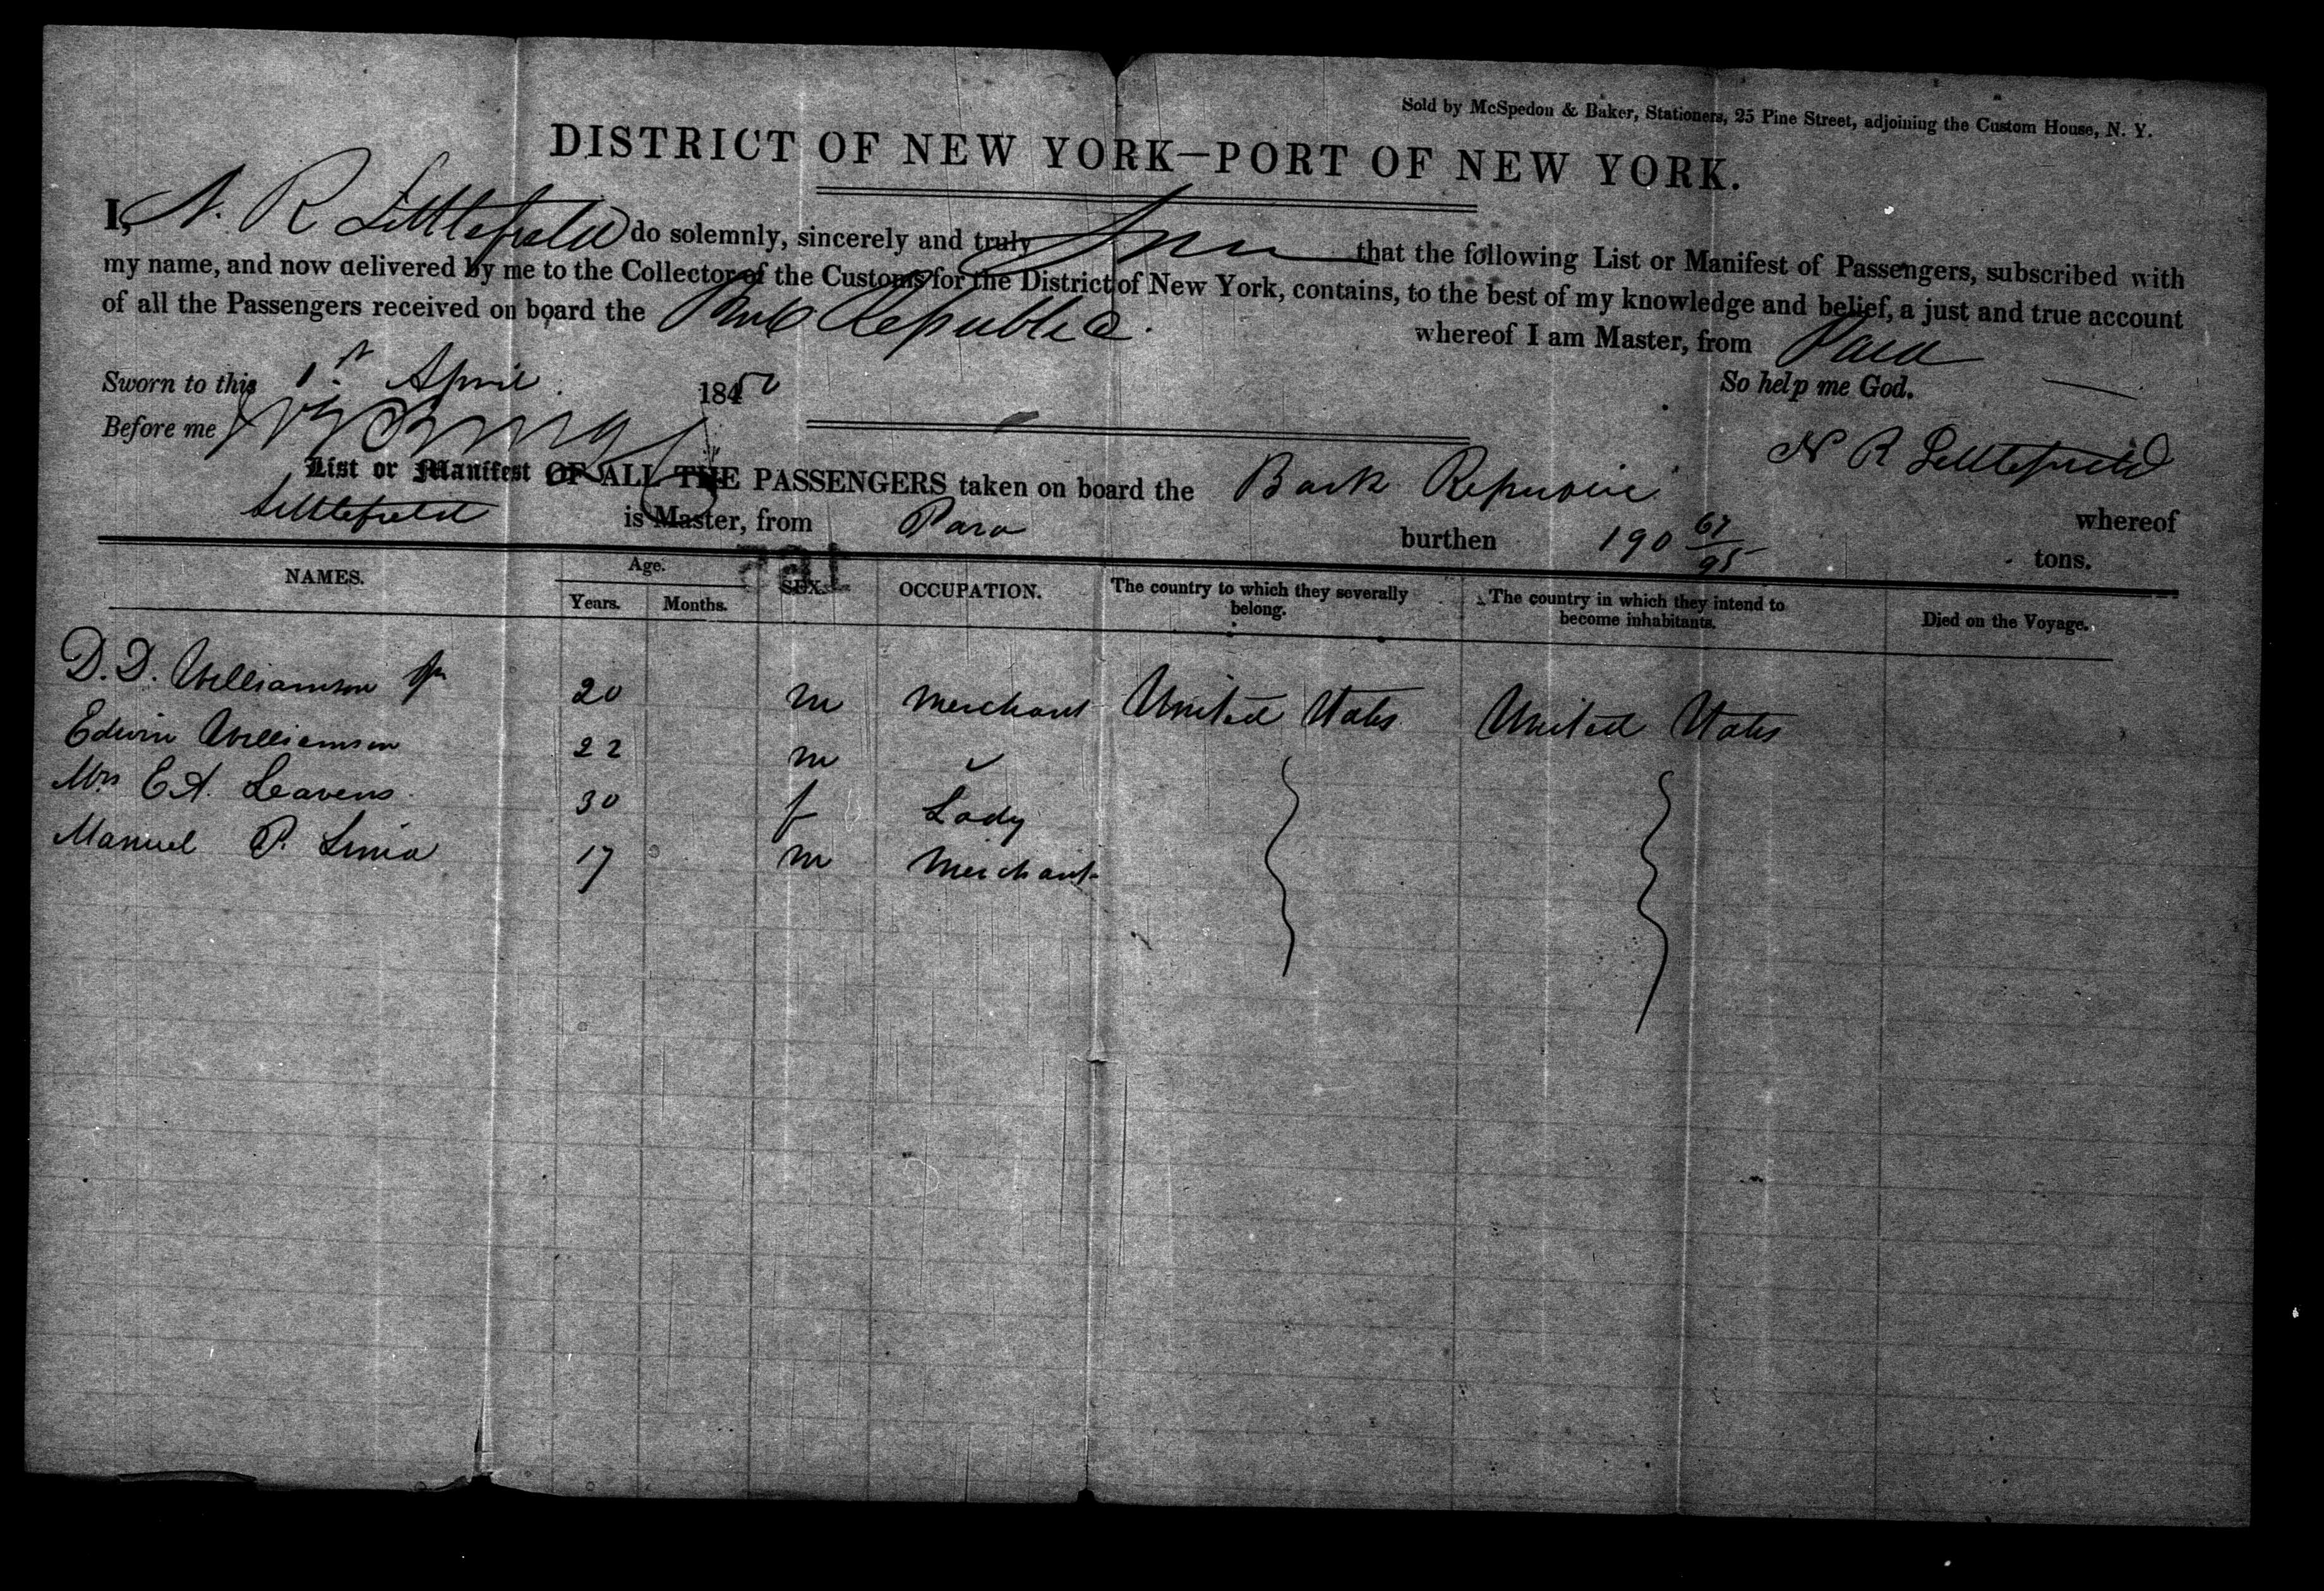 Sold by McSpedon & Baker, Stationers, 25 Pine Street, adjoining the Custom House, N. Y.
DISTRICT OF NEW YORK—PORT OF NEW YORK.
I, N. R Littlefield do solemnly, sincerely and truly that the following List or Manifest of Passengers, subscribed with
my name, and now delivered by me to the Collector of the Customs for the District of New York, contains, to the best of my knowledge and belief, a just and true account
of all the Passengers received on board the Bark Republic. whereof I am Master, from Para
Sworn to this 1st April 1850 So help me God.
Before me
N R Littlefield
List or Manifest OF ALL THE PASSENGERS taken on board the Bark Republic whereof
Littlefield is Master, from Para burthen 190 67/95 tons.
NAMES. Age. SEX. OCCUPATION. The country to which they severally belong. The country in which they intend to become inhabitants. Died on the Voyage.
Years. Months.
D. D. Williamson Jr 20 m Merchant United States United States
Edwin Williamson 22 m
Mrs E A. Leavens 30 f Lady
Manuel P. 17 m Merchant